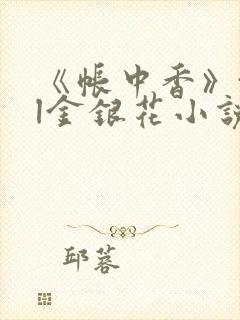 《帐中香》
|金银花小说
邱蓉